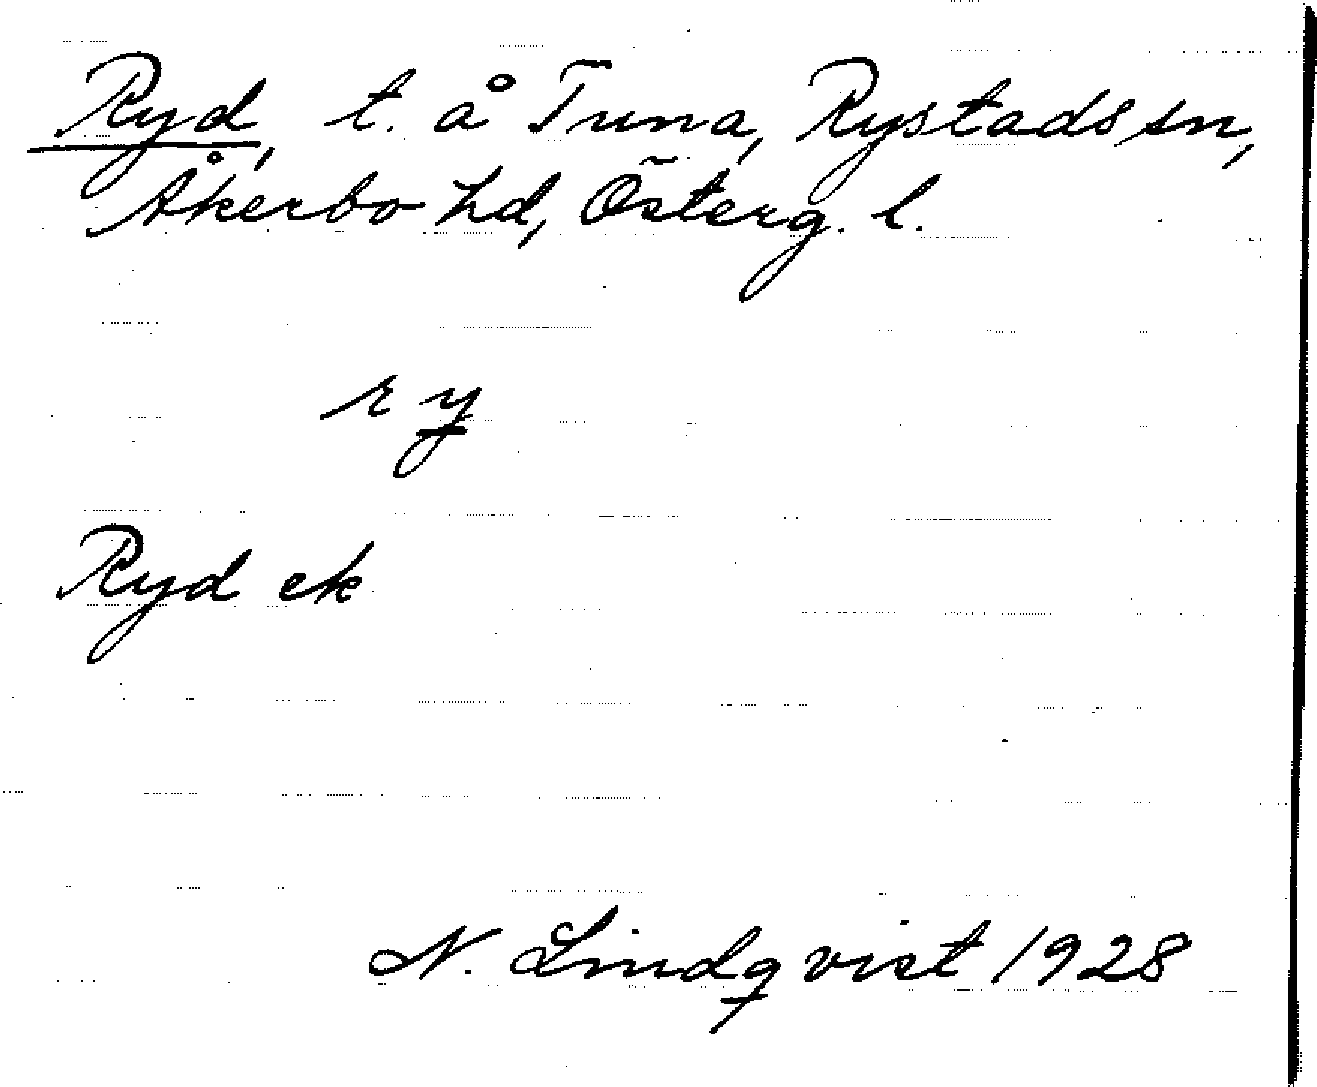 Ryd, t. å Tuna, Rystads sn,
Åkerbo hd, Österg. l.
ry
Ryd ek
N. Lindqvist 1928